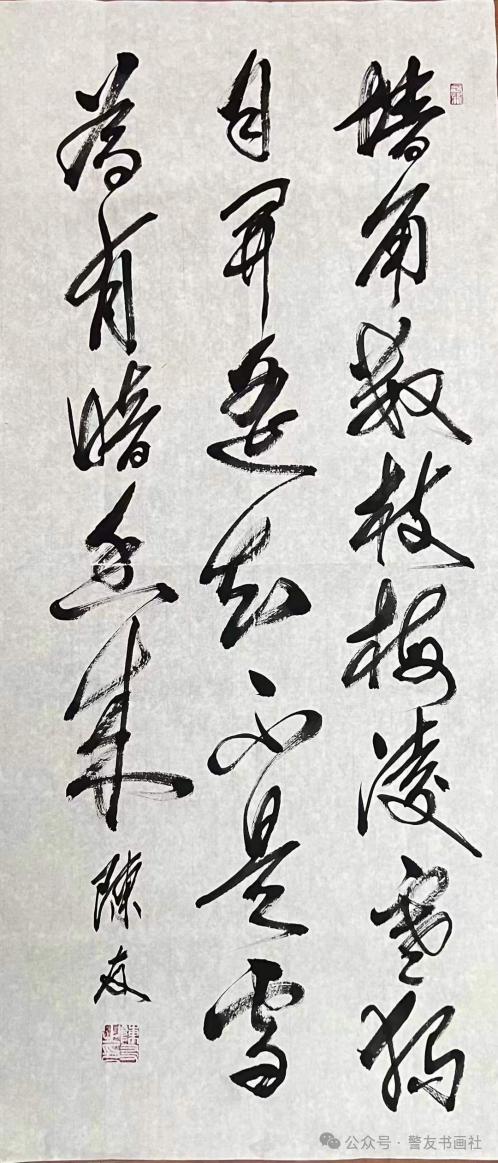 墙角数枝梅凌寒独
自开遥知不是雪
为有暗香来 陈友
公众号·警友书画社